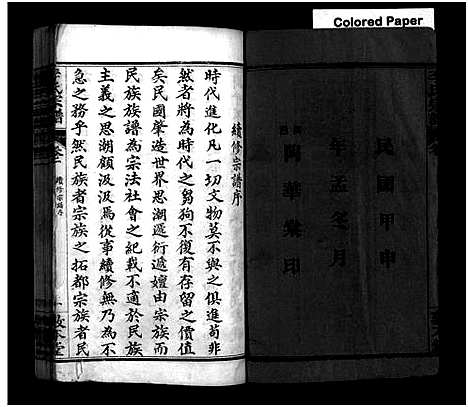 Colored Paper
民國甲申
年孟冬月
陶華棠印
續修宗譜序
時代進化凡一切文物莫不與之俱進苟非
然者將為時代之芻狗不復有存留之價值
矣民國肇造世界思湖遞衍遞嬗由宗族而
民族族譜為宗法社會之紀載不適於民族
主義之思湖顧汲汲焉從事續修無乃為不
急之務乎然民族者宗族之拓都宗族者民
氏宗譜
卷一
續修宗譜序
一
敦本堂